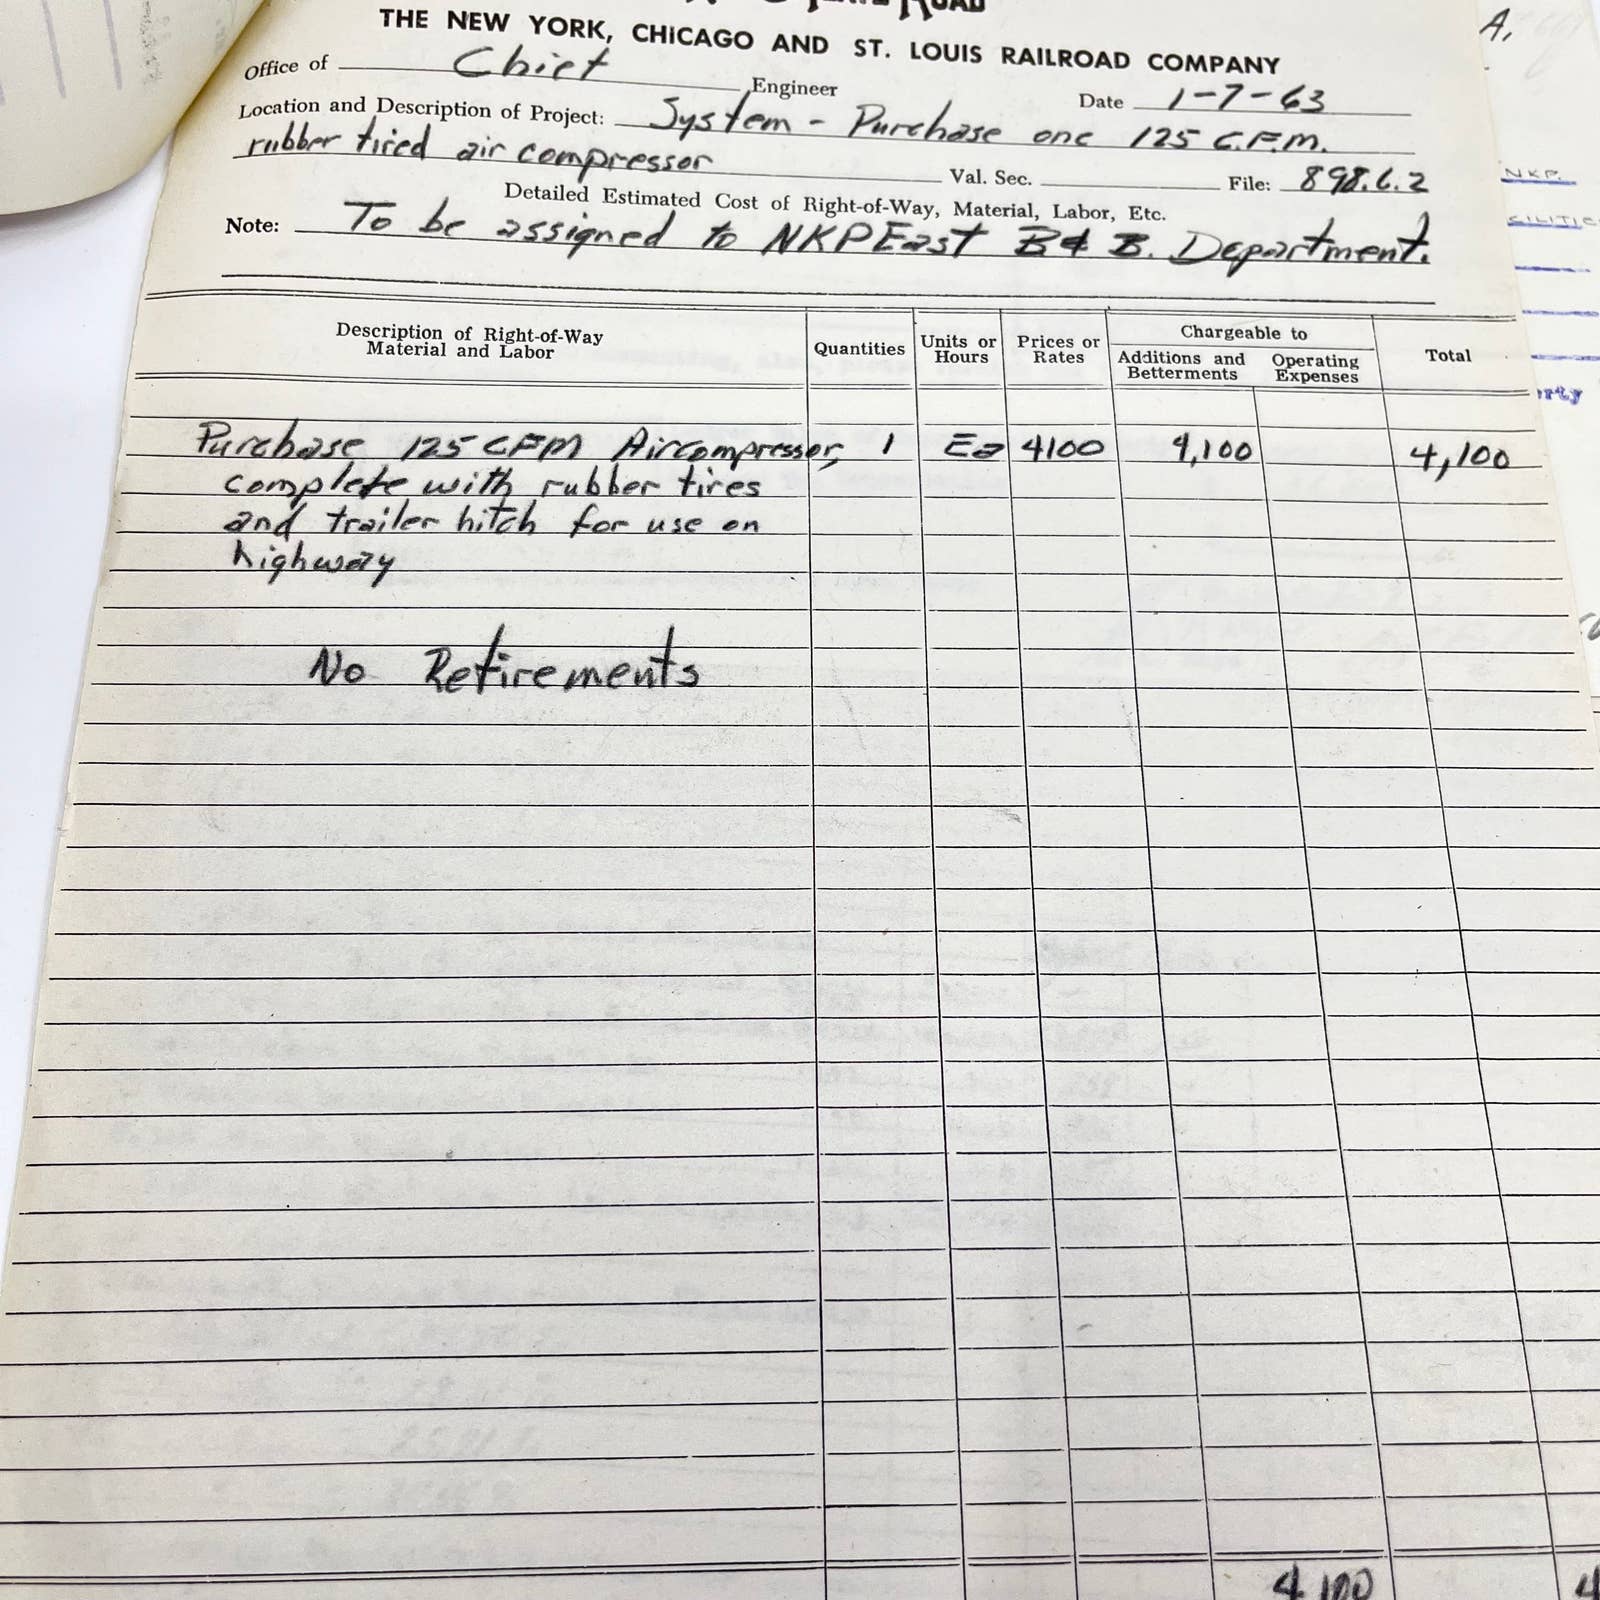 ROAD
THE NEW YORK, CHICAGO AND ST. LOUIS RAILROAD COMPANY
Office of Chief Engineer Date 1-7-63
Location and Description of Project: System - Purchase one 125 C.F.M.
rubber tired air compressor Val. Sec. File: 898.6.2
Detailed Estimated Cost of Right-of-Way, Material, Labor, Etc.
Note: To be assigned to NKP East B & B. Department.
Description of Right-of-Way
Material and Labor
Quantities
Units or
Hours
Prices or
Rates
Chargeable to
Additions and
Betterments
Operating
Expenses
Total
Purchase 125 CFM Aircompressor, 1 Ea 4100 4,100 4,100
complete with rubber tires
and trailer hitch for use on
highway
No Retirements
4 100
4
A.
NKP.